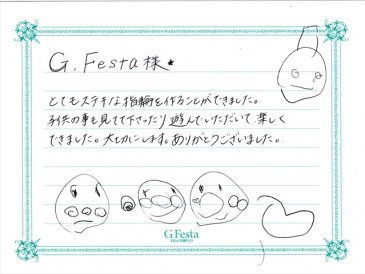 G.Festa様★
とてもステキな指輪を作ることができました。
子供の事も見てて下さったり遊んでいただいて楽しく
できました。大切にします。ありがとうございました。
G.Festa